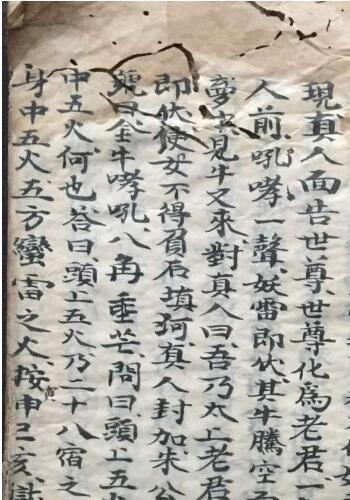 現真人面告世尊世尊化為老君一
人前吼哮一聲妖雷即伏其牛騰空
夢中見牛又來對真人曰吾乃太上老君
即伏使女不得負石填河真人封加朱公
號曰全牛哮吼八角垂芒問曰頭上五
中五火何也答曰頭上五火乃二十八宿之
身中五火五方蠻雷之火按申己亥